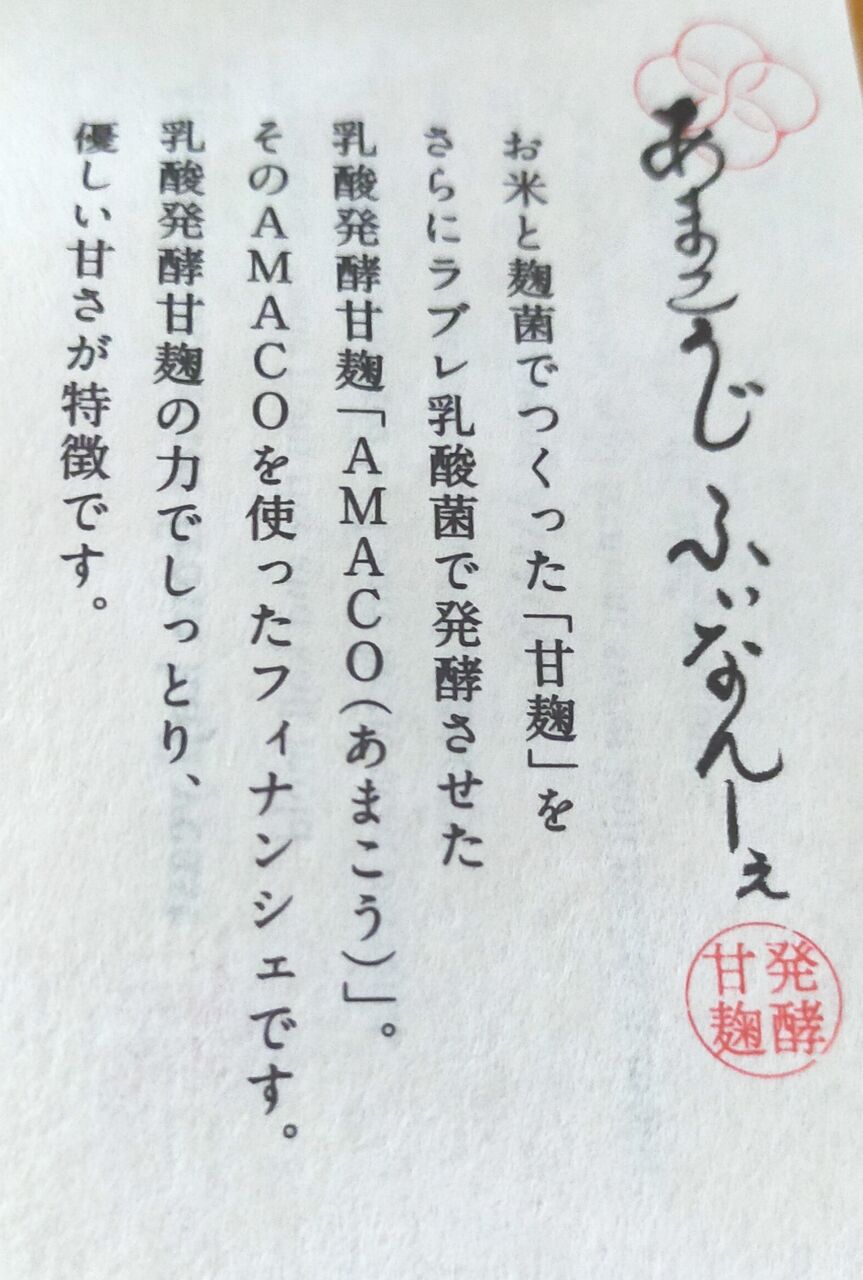 あまこうじ ふぃなんしぇ
発酵
甘麹
お米と麹菌でつくった「甘麹」を
さらにラブレ乳酸菌で発酵させた
乳酸発酵甘麹「AMACO(あまこう)」。
そのAMACOを使ったフィナンシェです。
乳酸発酵甘麹の力でしっとり、
優しい甘さが特徴です。